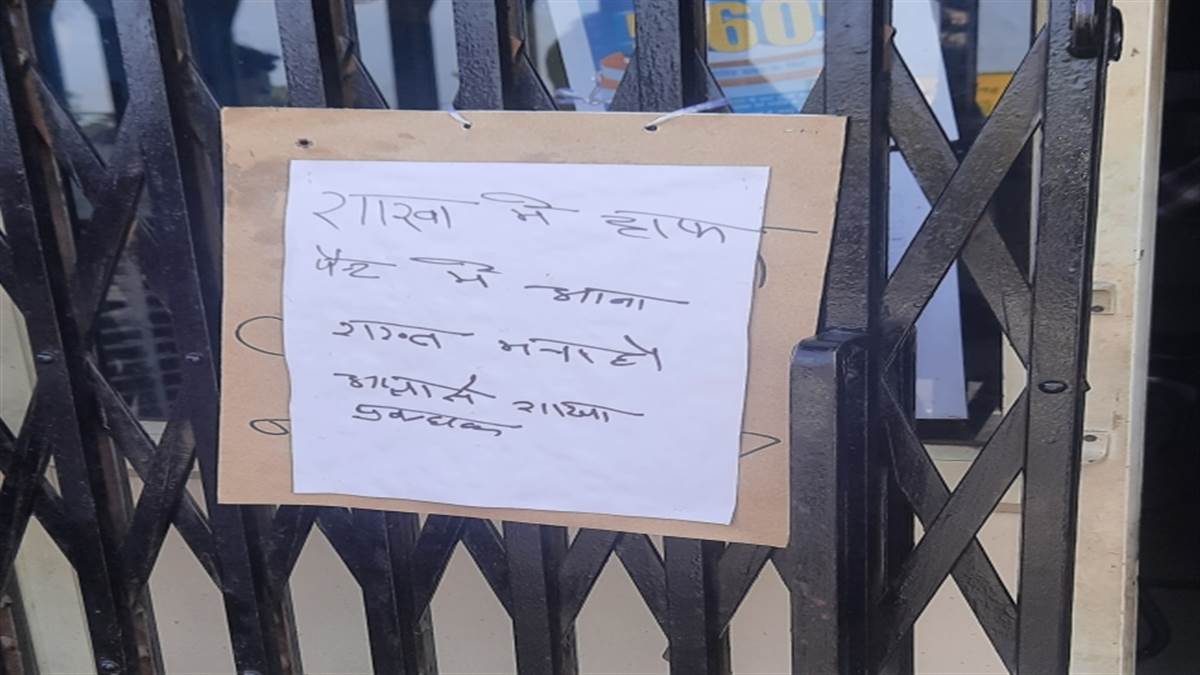 60
शाखा में हाफ
पैंट में आना
शख्त मना है
आज्ञा से शाखा
प्रबन्धक